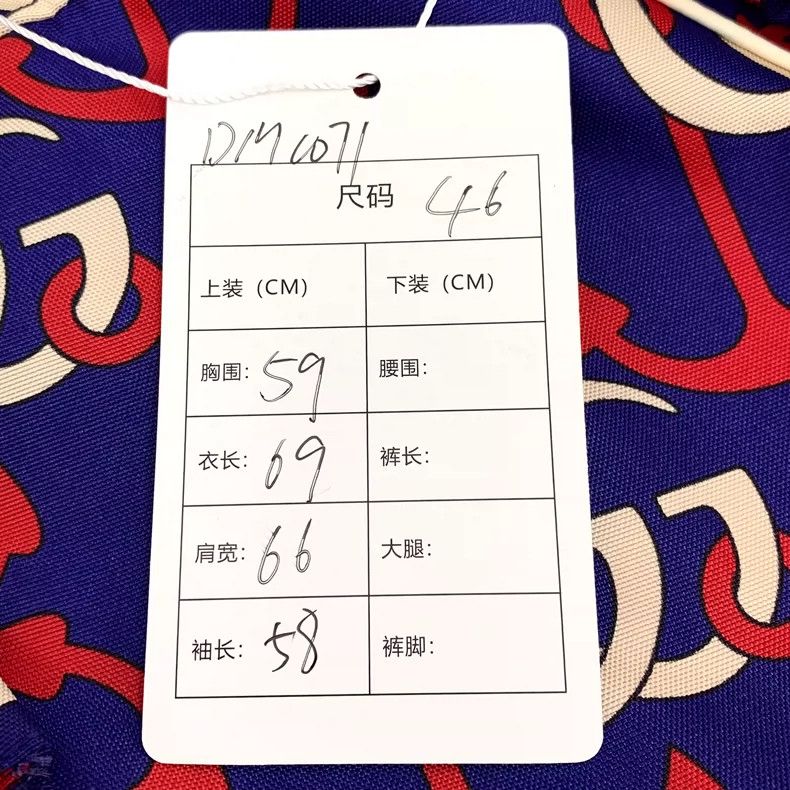 DM1071
尺码 46
上装（CM） 下装（CM）
胸围：59 腰围：
衣长：69 裤长：
肩宽：66 大腿：
袖长：58 裤脚：